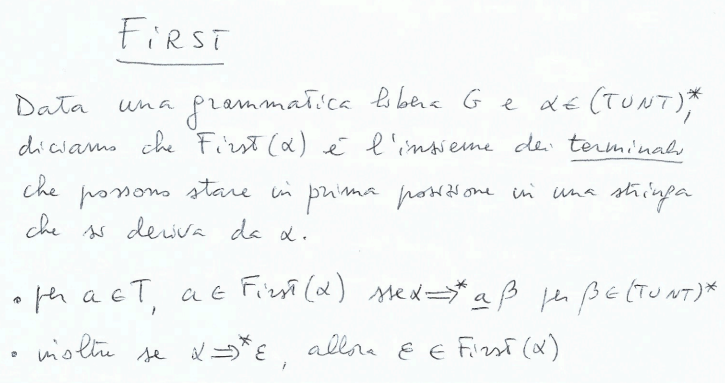 FiRST
Data una grammatica libera G e α ∈ (T∪NT)*,
diciamo che First(α) è l'insieme dei terminali
che possono stare in prima posizione in una stringa
che si deriva da α.
• per a ∈ T, a ∈ First(α) sse α ⇒* a β per β ∈ (T∪NT)*
• inoltre se α ⇒* ε, allora ε ∈ First(α)